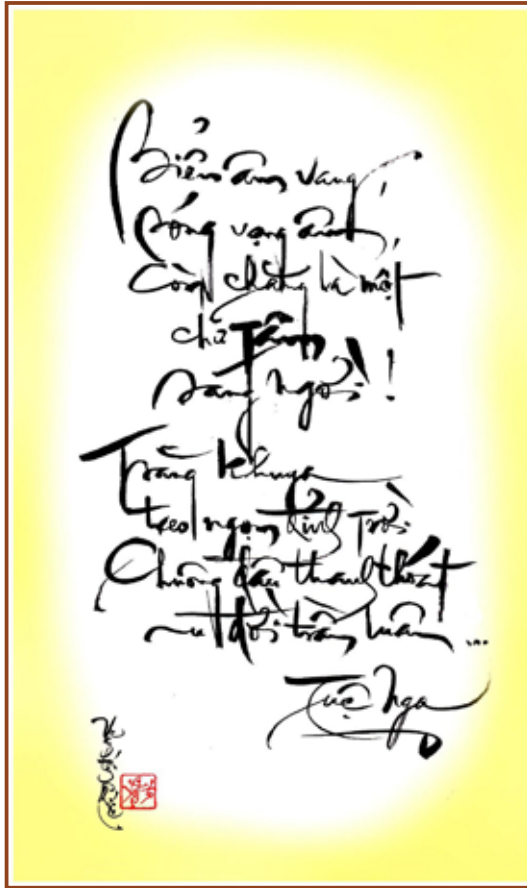 Biển âm vang,
sóng vọng âm,
Còn chăng là một
chữ Tâm
sáng ngời!
Trăng khuya
treo ngọn đỉnh trời
Chuông đâu thanh thoát
đời trầm luân ...
Tuệ Nga